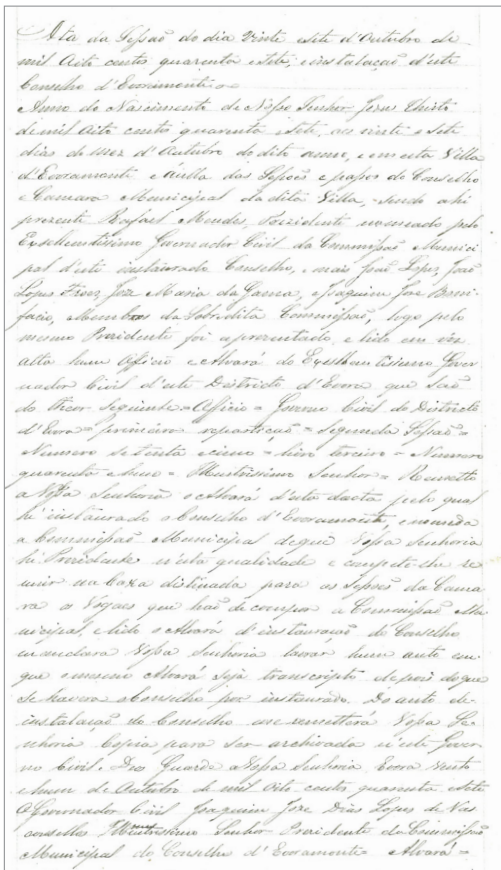 Acta da Sessaõ do dia Vinte e Sete d'Outubro de
mil Oito centos quarenta e Sete, e instalaçaõ d'este
Conselho d'Evoramonte
Anno do Nascimento de Nosso Senhor Jezus Christo
de mil Oito centos quarenta e Sete, aos vinte e Sete
dias do mez d'Outubro do dito anno, e em esta Villa
d'Evoramonte e Aulla das Sessoês e passos do Conselho
e Camara Municipal da dita Villa, sendo ahi
prezente Rafael Mendes, Prezidente nomeado pelo
Excellentissimo Governador Civil da Commissaõ Munici
pal d'este instaurado Conselho, e mais Joaõ Lopes, Joaõ
Lopes Froes, Joze Maria da Gama, e Joaquim Joze Boni-
facio, Membros da Sobredita Commissaõ, logo pelo
mesmo Prezidente foi aprezentado, e lido em vóz
alta hum Officio e Alvará do Excellentissimo Gover
nador Civil d'este Districto d'Evora que saõ
do theor seguinte = Officio = Governo Civil do Districto
d'Evora = primeira repartiçaõ = segunda Sessaõ =
Numero setenta e cinco = livro terceiro = Numero
quarenta e hum = Illustrissimo Senhor = Remetto
a Vossa Senhoria o Alvará d'esta dacta pelo qual
hé instaurado o Conselho d'Evoramonte, e nomeada
a Commissaõ Municipal de que Vossa Senhoria
hé Prezidente n'esta qualidade e compete-lhe re
unir na Caza distinada para as Sessoês da Cama
ra os Vogaes que haõ de compor a Commissaõ Mu
nicipal, e lido o Alvará d'instauraçaõ do Conselho
mandará Vossa Senhoria lavrar hum auto em
que o mesmo Alvará seja transcripto depois do que
se havera o Conselho por instaurado. Do auto de
instalaçaõ do Conselho me remetterá Vossa Se
nhoria Copia para ser archivada n'este Gover
no Civil. Deos Guarde a Vossa Senhoria Evora vinte
e hum de Outubro de mil Oito centos quarenta e Sete
O Governador Civil Joaquim Joze Dias Lopes de Vas
concellos Illustrissimo Senhor Prezidente da Commissaõ
Municipal do Conselho d'Evoramonte = Alvará =